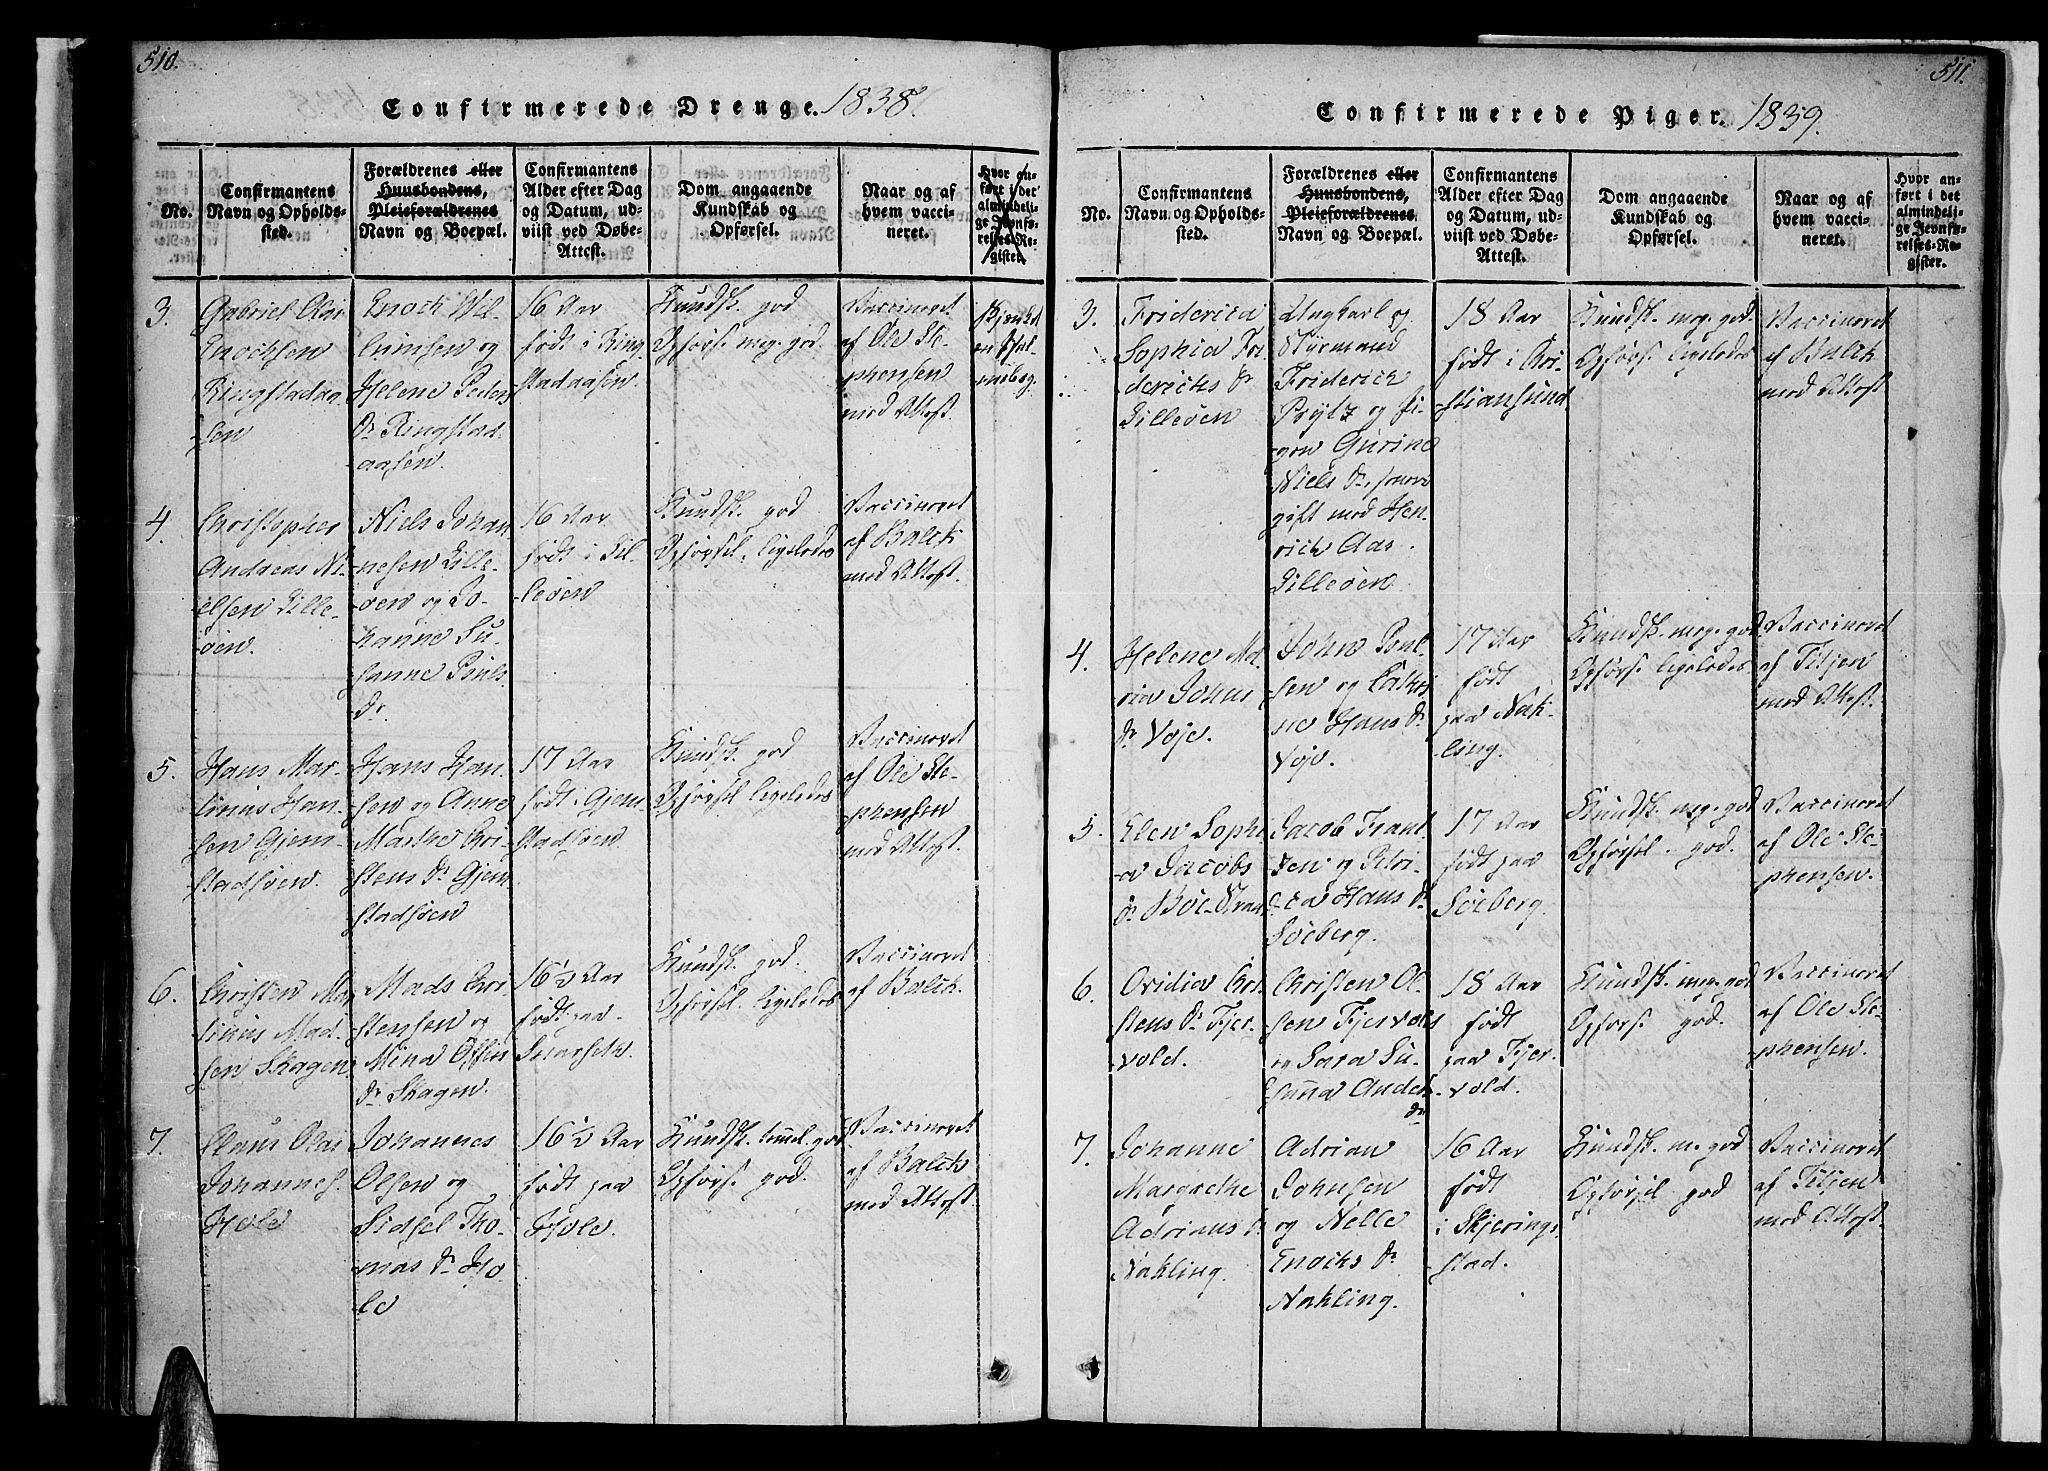 510.
Confirmerede Drenge. 1838
No.
Confirmantens
Navn og Opholds-
sted.
Forældrenes eller
Huusbondens,
Pleieforældrenes
Navn og Boepæl.
Confirmantens
Alder efter Dag
og Datum, ud-
viist ved Døbe-
Attest.
Dom angaaende
Kundskab og
Opførsel.
Naar og af
hvem vacci-
neret.
Hvor an-
ført i det
almindeli-
ge Jevnfø-
relses-Re-
gister.
3.
Gabriel
Enochsen
Ringstadaa-
sen
Enoch Wil-
lumsen og
Helene Peders
Dr. Ringstad-
aasen.
16 Aar
født i Ring-
stadaasen.
Kundsk. god
Opførs. meg. god
Vaccineret
af Ole Ste-
phensen
med Attest.
4.
Christopher
Andreas Ni-
elsen Lille-
øen.
Niels Johan-
nesen Lille-
øen og Jo-
hanne Su-
sanne Pouls
Dr.
16 Aar
født i Lil-
leøen
Kundsk. god
Opførsel ligeledes
Vaccineret
af Balck
med Attest.
5.
Hans Mar-
tinius Han-
sen Gjem-
stadsøen.
Hans Han-
sen og Anne
Marthe Chri-
stens Dr. Gjem-
stadsøen
17 Aar
født i Gjem-
stadsøen
Kundsk. god
Opførsel ligeledes
Vaccineret
af Ole Ste-
phensen
med Attest.
6.
Christen Mar-
tinius Mad-
sen Skagen
Mads Chri-
stensen og
Mina
Dr. Skagen.
16½ Aar
født paa
Kundsk. god.
Opførsel ligeledes
Vaccineret
af Balck.
7.
Claus Olai
Johannes.
Hole
Johannes
Olsen og
Sidsel Tho-
mas Dr. Ho-
le
16½ Aar
født paa
Hole.
Kundsk. temmel. god
Opførs. god.
Vaccineret
af Balck
med Attest.
511.
Confirmerede Piger. 1839.
No.
Confirmantens
Navn og Opholds-
sted.
Forældrenes eller
Huusbondens,
Pleieforældrenes
Navn og Boepæl.
Confirmantens
Alder efter Dag
og Datum, ud-
viist ved Døbe-
Attest.
Dom angaaende
Kundskab og
Opførsel.
Naar og af
hvem vacci-
neret.
Hvor an-
ført i det
almindeli-
ge Jevnfø-
relses-Re-
gister.
3.
Friderica
Sophia Fri-
derichs Dr.
Lilleøen
Ungkarl og
Styrmand
Friderich
Prytz og Pi-
gen Gurine
Niels Dr.,
gift med Hen-
rich Aas.
Lilleøen
18 Aar
født i Chri-
stiansund
Kundsk. meg. god
Opførs. ligeledes
Vaccineret
af Balck
med Attest
4.
Helene Ma-
ria Johns
Dr. Voje.
John Poul-
sen og Cathri-
ne Hans Dr.
Voje.
17 Aar
født
paa Nak-
ling.
Kundsk. meg. god
Opførs. ligeledes
Vaccineret
af Tetjen
med Attest.
5.
Elen Sophi-
a Jacobs
Jacob Frant-
zen og Petri-
cea Hans Dr.
Søeberg.
17 Aar
født paa
Søeberg.
Kundsk. meg. god
Opførsel. god.
Vaccineret
af Ole Ste-
phensen.
6.
Ovidia Chri-
stens Dr. Fjer-
vold.
Christen Ol-
sen Fjervold
og Sara Su-
sanna Anders
Dr.
18 Aar
født
paa Fjer-
vold.
Kundsk. meg. god
Opførs. god.
Vaccineret
af Ole Ste-
phensen.
7.
Johanne
Margrethe
Adrians D.
Nakling.
Adrian
Johnsen
og Nelle
Enochs Dr.
Nakling.
16 Aar
født
i Skjerings-
stad.
Kundsk. m. god
Opførsel god
Vaccineret
af Tetjen
med Attest.